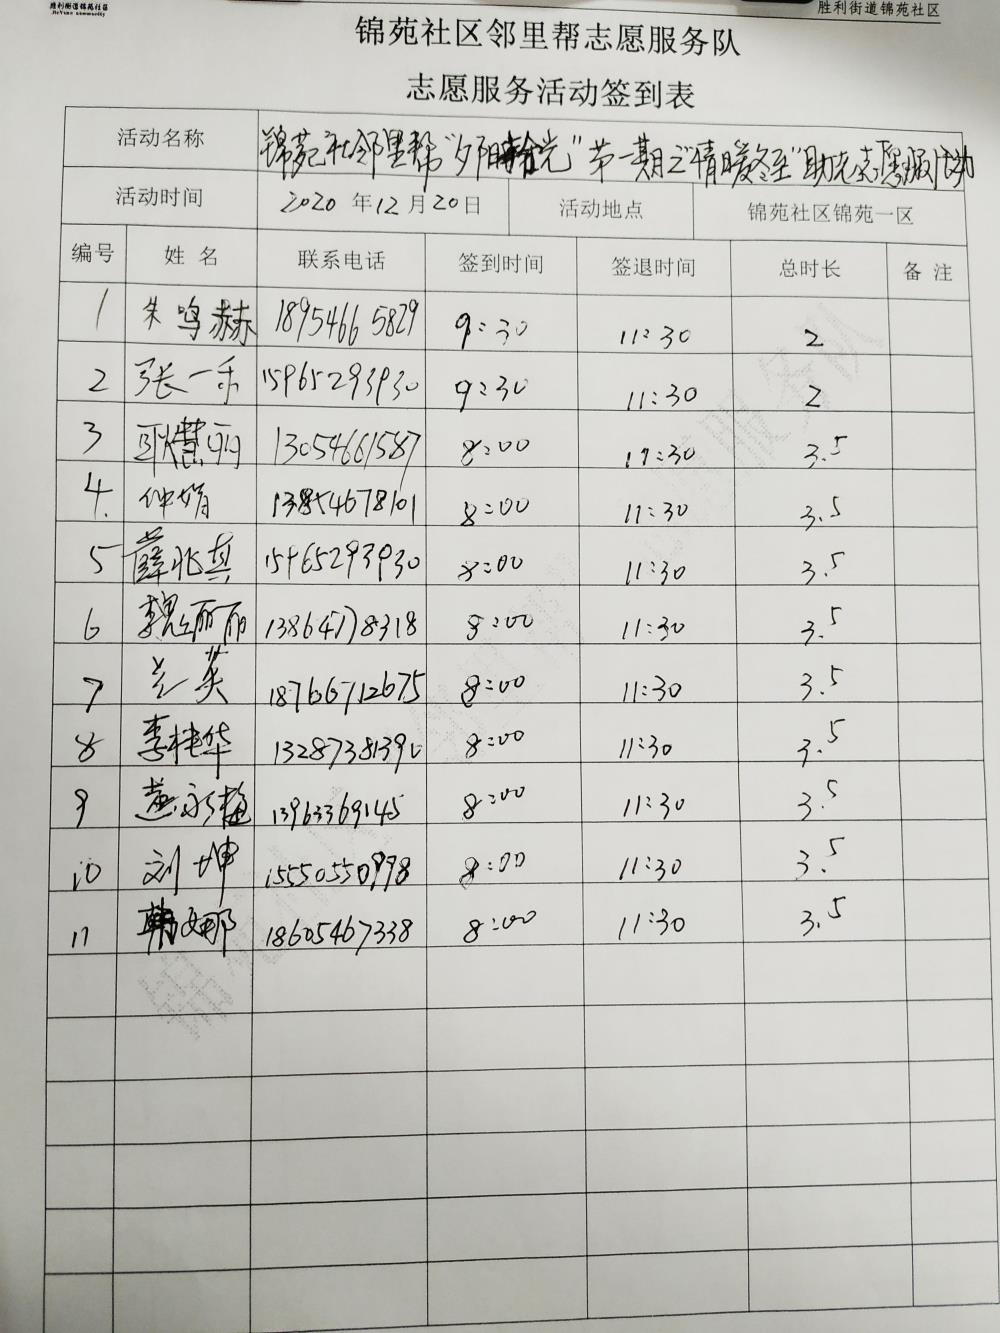 胜利街道锦苑社区
胜利街道锦苑社区
锦苑社区邻里帮志愿服务队
志愿服务活动签到表
活动名称 锦苑社邻里帮"夕阳拾光"第一期之"情暖冬至"助老志愿服务活动
活动时间 2020年12月20日 活动地点 锦苑社区锦苑一区
编号 姓名 联系电话 签到时间 签退时间 总时长 备注
1 朱鸣赫 18954665829 9:30 11:30 2
2 张一乐 15965293930 9:30 11:30 2
3 耿慧丽 13054661587 8:00 11:30 3.5
4. 仲娟 13854678101 8:00 11:30 3.5
5 薛兆真 15965293930 8:00 11:30 3.5
6 魏丽丽 13864778318 8:00 11:30 3.5
7 兰英 18766712675 8:00 11:30 3.5
8 李桂华 13287381390 8:00 11:30 3.5
9 燕永梅 13963369145 8:00 11:30 3.5
10 刘坤 15550550998 8:00 11:30 3.5
11 韩娜 18605467338 8:00 11:30 3.5